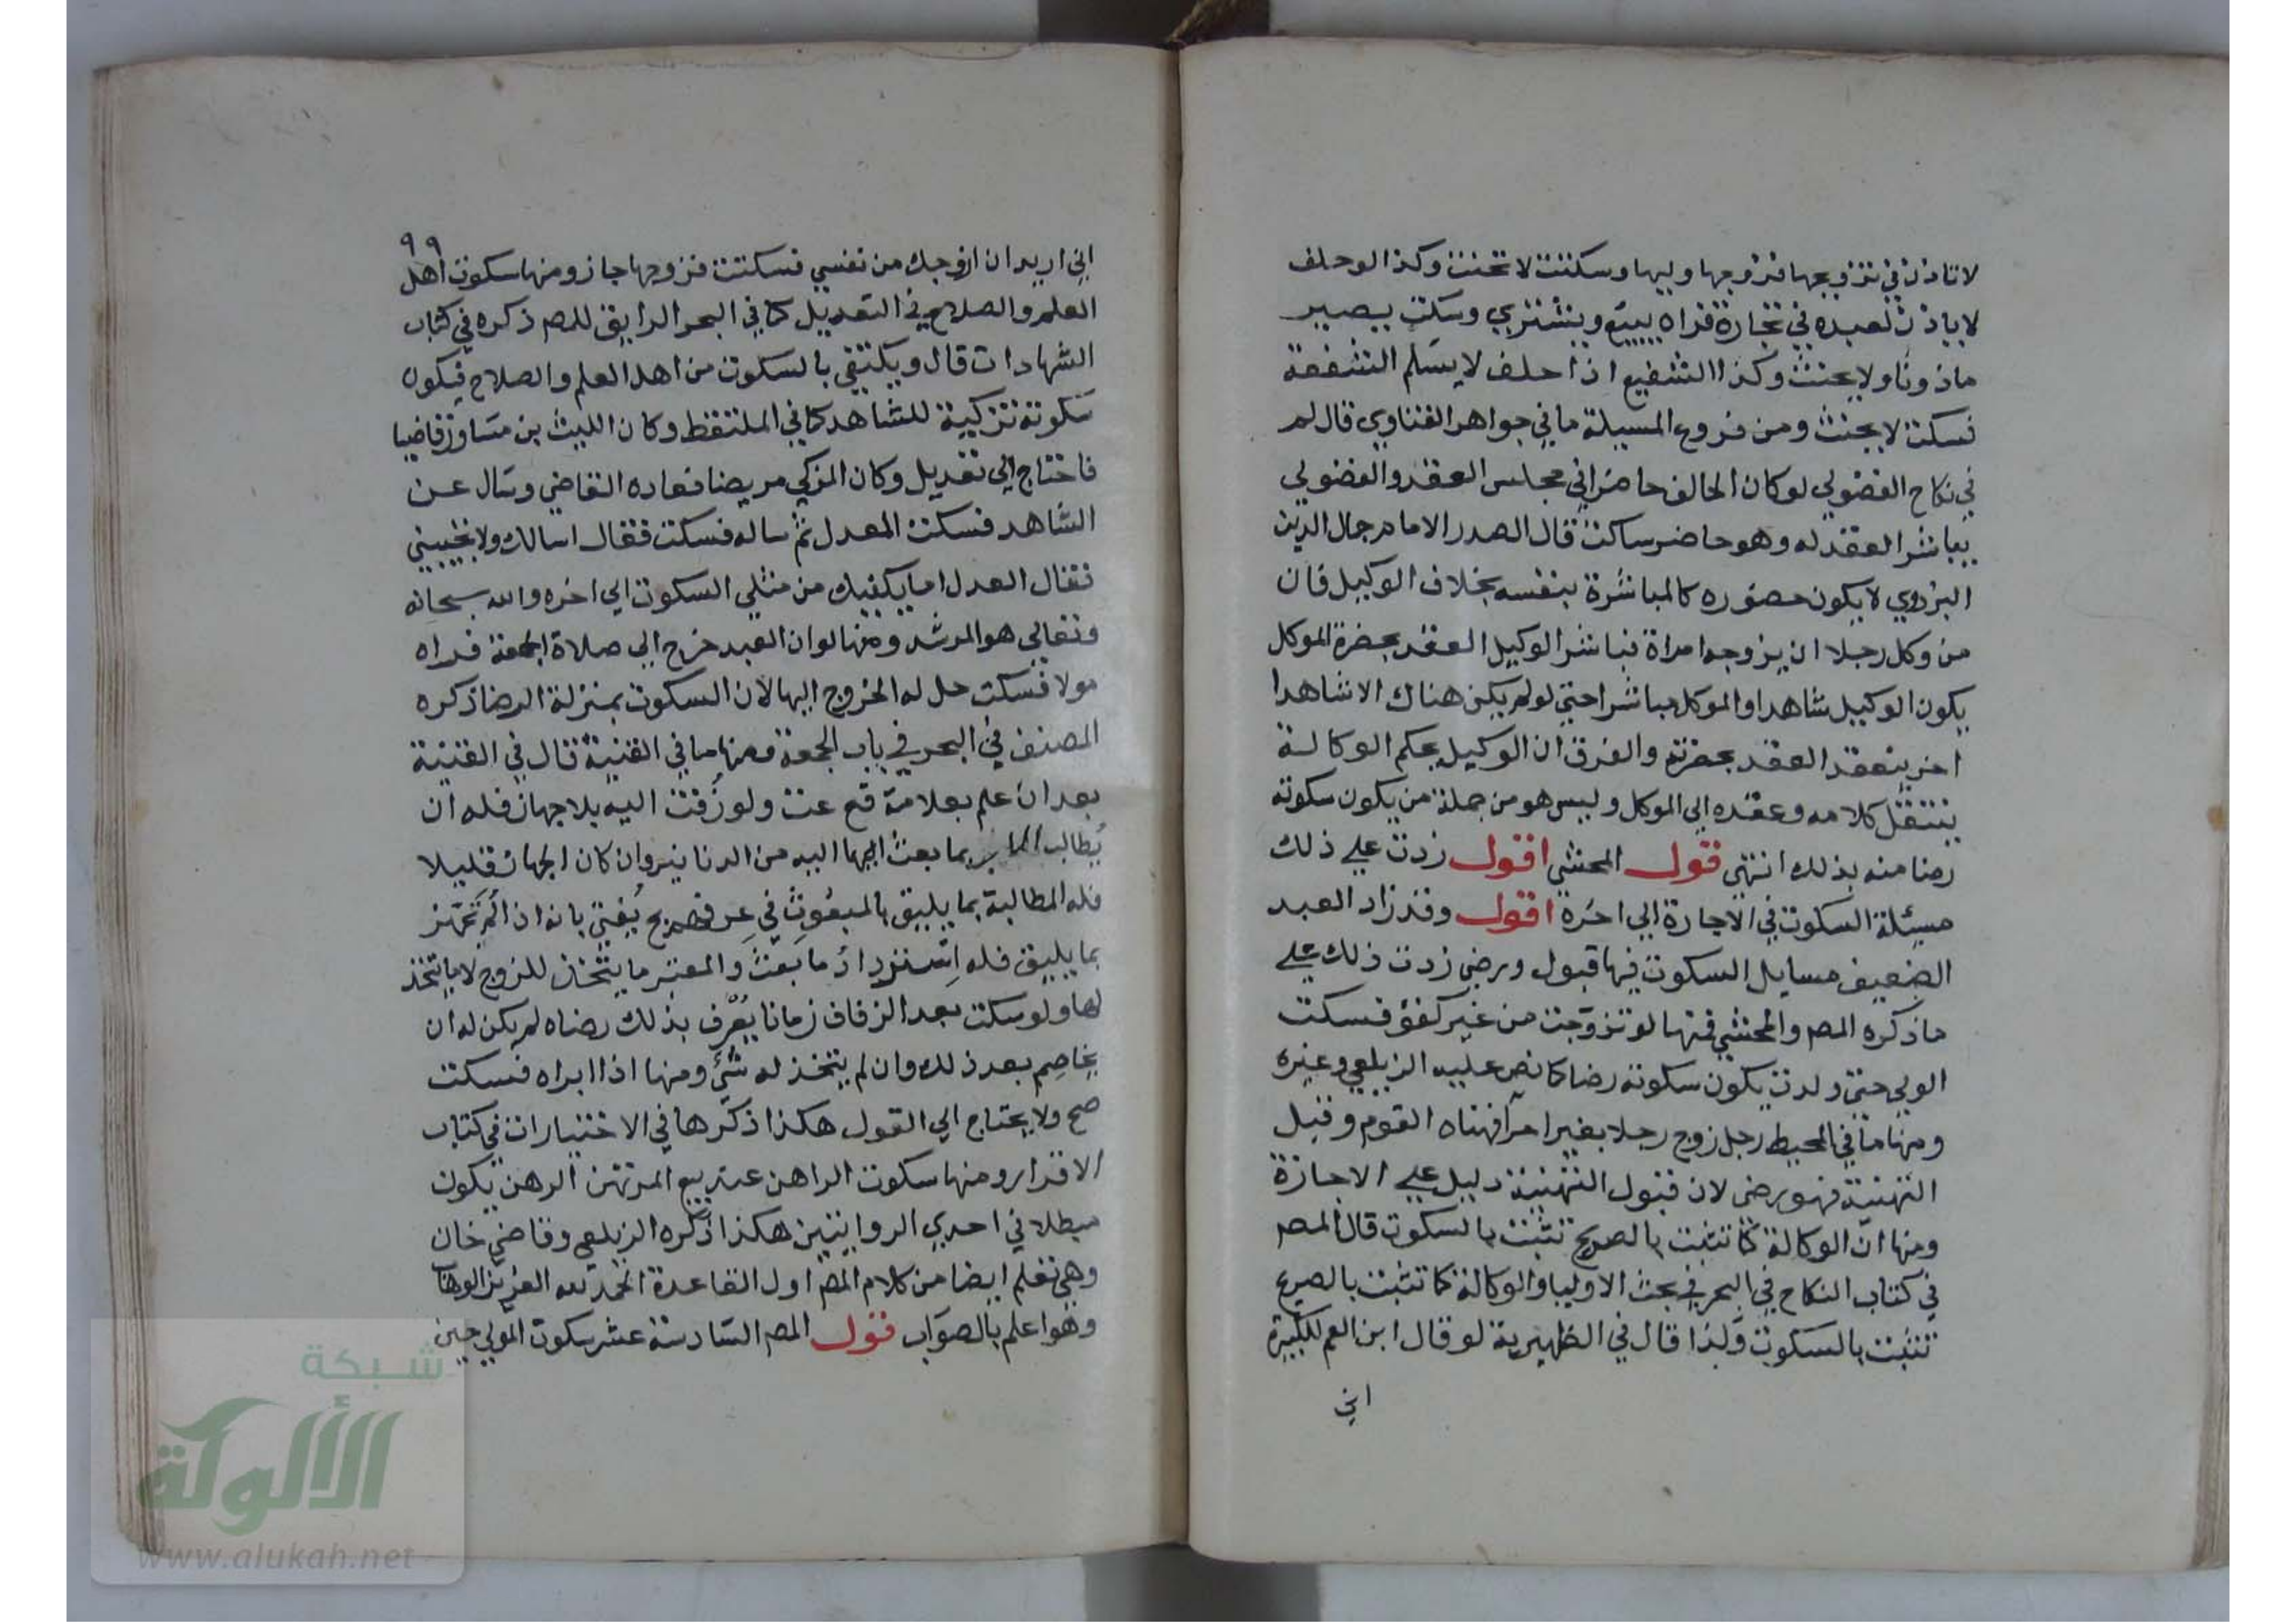 لا تاذن في تزويجها فزوجها وليها وسكتت لا تحنث وكذا لو حلف
لا ياذن لعبده في تجارة فراه يبيع ويشتري وسكت يصير
ماذونا ولا يحنث وكذا الشفيع اذا حلف لا يسلم الشفعة
فسكت لا يحنث ومن فروع المسيلة ما في جواهر الفتاوي قال لم
في نكاح الفضولي لو كان الحالف حاضرا في مجلس العقد والفضولي
يباشر العقد له وهو حاضر ساكت قال الصدر الامام جمال الدين
البزدوي لا يكون حضوره كالمباشرة بنفسه بخلاف الوكيل فان
من وكل رجلا ان يزوجه امراة فباشر الوكيل العقد بحضرة الموكل
يكون الوكيل شاهدا والموكل مباشرا حتي لو لم يكن هناك الا شاهدا
اخر ينعقد العقد بحضرته والفرق ان الوكيل بحكم الوكالة
ينتقل كلامه وعقده الي الموكل وليس هو من جملة من يكون سكوته
رضا منه بذلك انتهي قول المحشي اقول زدت علي ذلك
مسئلة السكوت في الاجارة الي اخره اقول وقد زاد العبد
الضعيف مسايل السكوت فيها قبول ورضي زدت ذلك علي
ما ذكره المص والمحشي فمنها لو تزوجت من غير كفؤ فسكت
الولي حتي ولدت يكون سكوته رضا كما نص عليه الزيلعي وغيره
ومنها ما في المحيط رجل زوج رجلا بغير امره فهناه القوم وقبل
التهنئة فهو رضي لان قبول التهنئة دليل علي الاجازة
ومنها ان الوكالة كما تثبت بالصريح تثبت بالسكوت قال المص
في كتاب النكاح في البحر في بحث الاوليا والوكالة كما تثبت بالصريح
تثبت بالسكوت ولذا قال في الظهيرية لو قال ابن العم للكبيرة
اني
٩٩
اني اريد ان ازوجك من نفسي فسكتت فزوجها جاز ومنها سكوت اهل
العلم والصلاح في التعديل كما في البحر الرايق للمص ذكره في كتاب
الشهادات قال ويكتفي بالسكوت من اهل العلم والصلاح فيكون
سكوته تزكية للشاهد كما في الملتقط وكان الليث بن مساور قاضيا
فاحتاج الي تعديل وكان المزكي مريضا فعاده القاضي وسال عن
الشاهد فسكت المعدل ثم ساله فسكت فقال اسالك ولا تجيبني
فقال العدل اما يكفيك من مثلي السكوت الي اخره والله سبحانه
وتعالي هو المرشد ومنها لو ان العبد خرج الي صلاة الجمعة فراه
مولا فسكت حل له الخروج اليها لان السكوت بمنزلة الرضا ذكره
المصنف في البحر في باب الجمعة ومنها ما في القنية قال في القنية
بعد ان علم بعلامة قع عت ولو زفت اليه بلا جهاز فله ان
يطالب بما بعث اليها اليه من الدنانير وان كان الجهاز قليلا
فله المطالبة بما يليق بالمبعوث في عرفهم يفتي بانه اذا لم تجهز
بما يليق فله استرداد ما بعث والمعتبر ما يتخذ للزوج لا ما يتخذ
لها ولو سكت بعد الزفاف زمانا يعرف بذلك رضاه لم يكن له ان
يخاصم بعد ذلك وان لم يتخذ له شئ ومنها اذا ابراه فسكت
صح ولا يحتاج الي القول هكذا ذكرها في الاختيارات في كتاب
الاقرار ومنها سكوت الراهن عند بيع المرتهن الرهن يكون
مبطلا في احدي الروايتين هكذا ذكره الزيلعي وقاضي خان
وهي تعلم ايضا من كلام المص اول القاعدة الحمد لله العزيز الوهاب
وهو اعلم بالصواب قول المص السادسة عشر سكوت المولي حين
شبكة
الألوكة
www.alukah.net